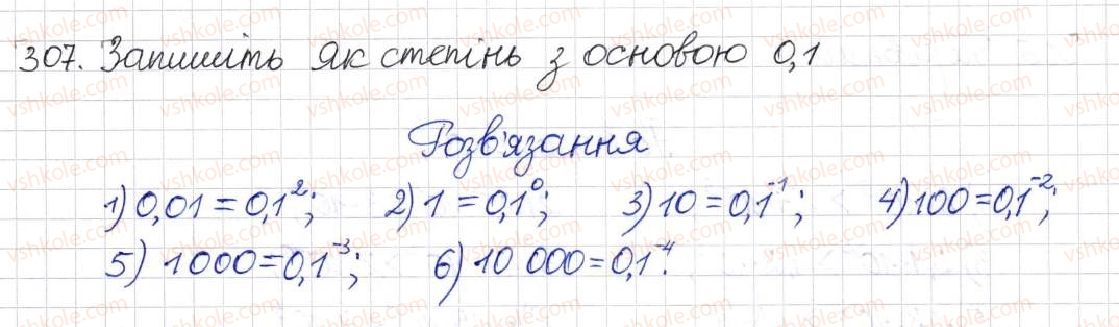 307. Запишіть як степінь з основою 0,1
Розв'язання
1) 0,01 = 0,1²; 2) 1 = 0,1⁰; 3) 10 = 0,1⁻¹; 4) 100 = 0,1⁻²;
5) 1000 = 0,1⁻³; 6) 10 000 = 0,1⁻⁴.